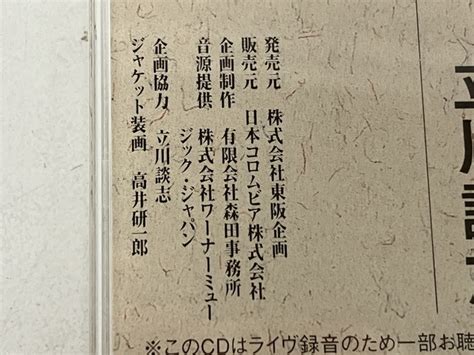 発売元　株式会社東阪企画
販売元　日本コロムビア株式会社
企画制作　有限会社森田事務所
音源提供　株式会社ワーナーミュー
ジック・ジャパン
企画協力　立川談志
ジャケット装画　高井研一郎
※このCDはライヴ録音のため一部お聴